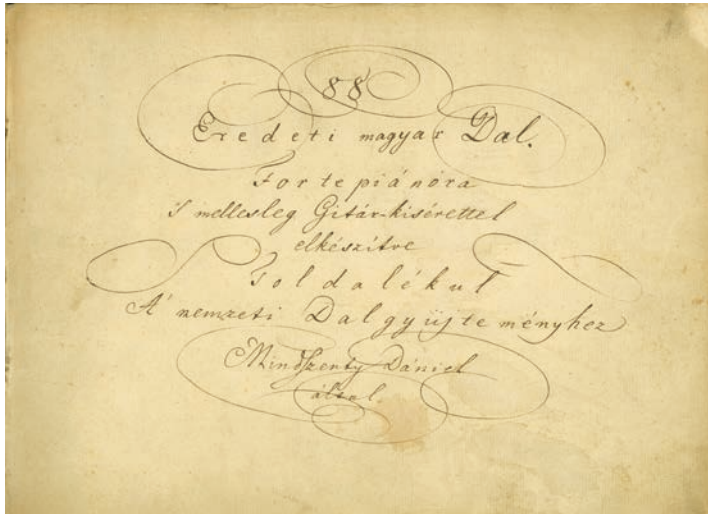 88
Eredeti magyar Dal.
Fortepiánóra
'S mellesleg Gitár-kisérettel
elkészítve
Toldalékul
A' nemzeti Dalgyüjteményhez
Mindszenty Dániel
által.